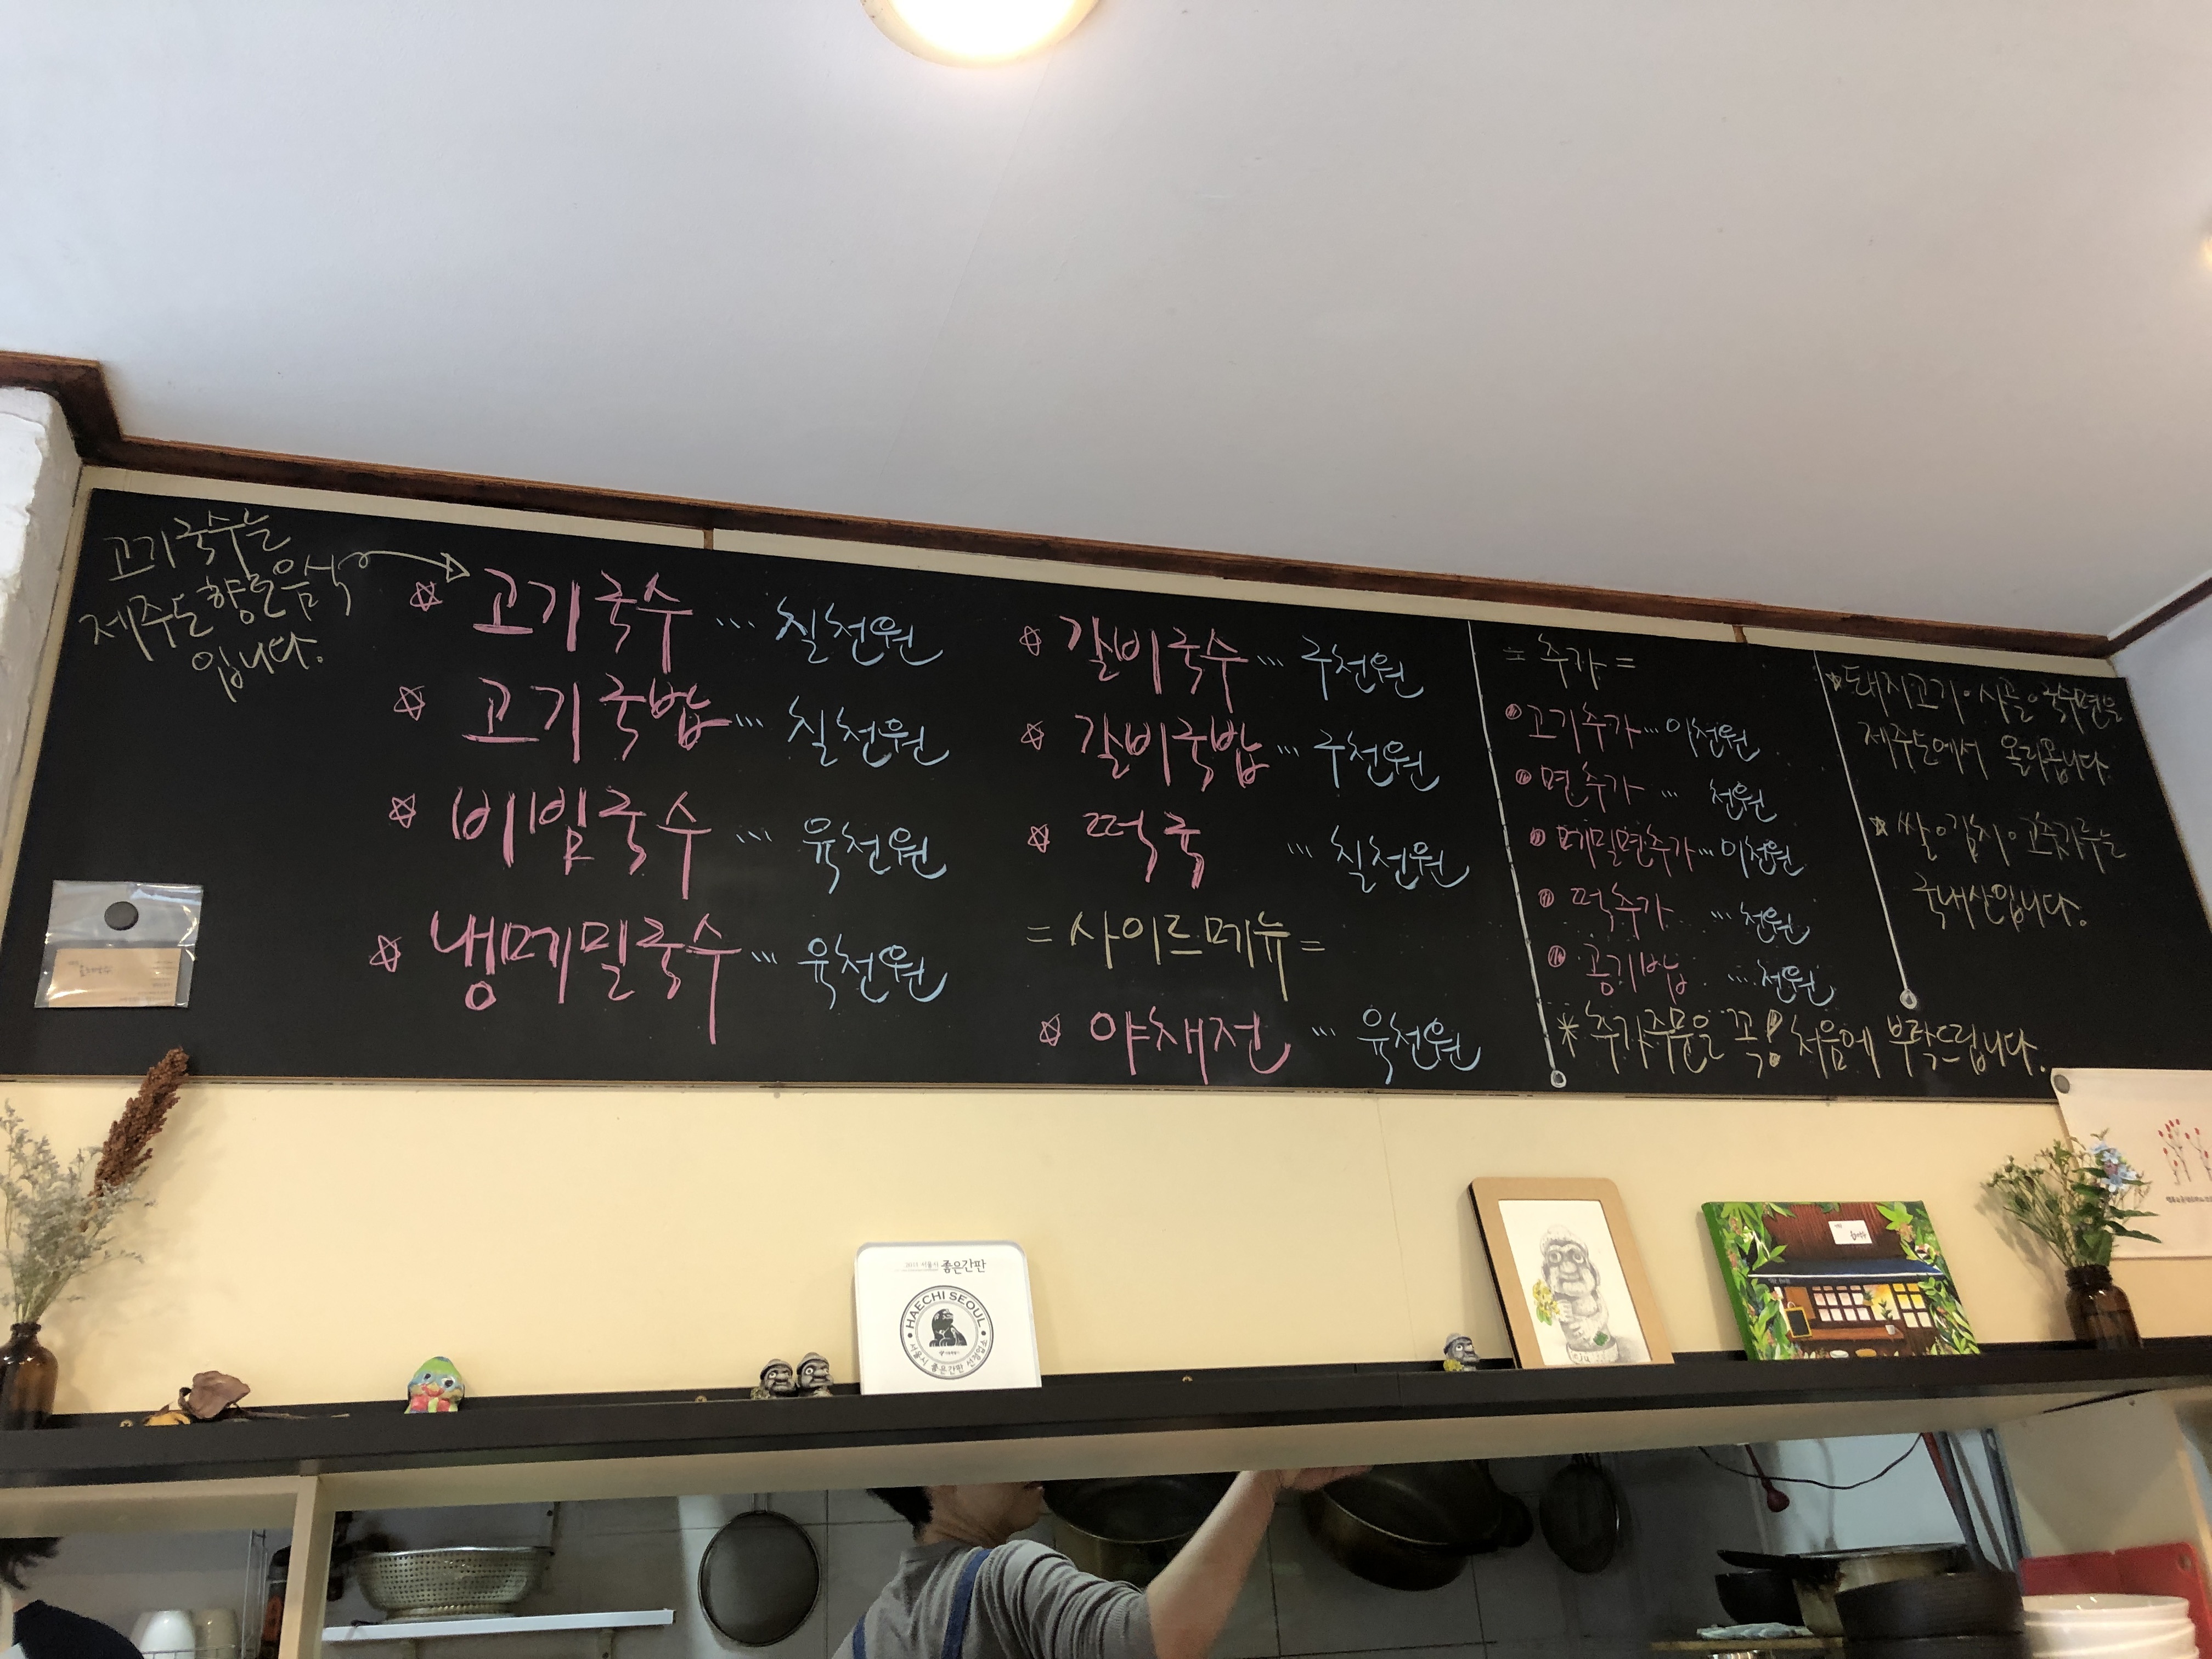 고기국수는
제주도 향토음식
입니다.
고기국수 ... 칠천원
고기국밥 ... 칠천원
비빔국수 ... 육천원
냉메밀국수 ... 육천원
갈비국수 ... 구천원
갈비국밥 ... 구천원
떡국 ... 칠천원
= 사이드메뉴 =
야채전 ... 육천원
= 추가 =
고기추가 ... 이천원
면추가 ... 천원
메밀면추가 ... 이천원
떡추가 ... 천원
공기밥 ... 천원
* 추가주문을 꼭! 처음에 부탁드립니다.
돼지고기·사골·국수면을
제주도에서 올라옵니다.
쌀·김치·고춧가루는
국내산입니다.
서울시 좋은간판
HAECHI SEOUL
서울시 좋은간판 선정업소